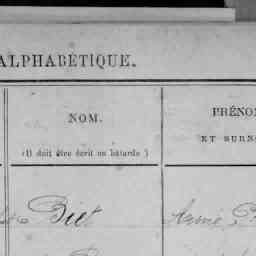 ALPHABÉTIQUE.
NOM.
(Il doit être écrit en bâtarde)
PRÉNO
ET SURN
Biet